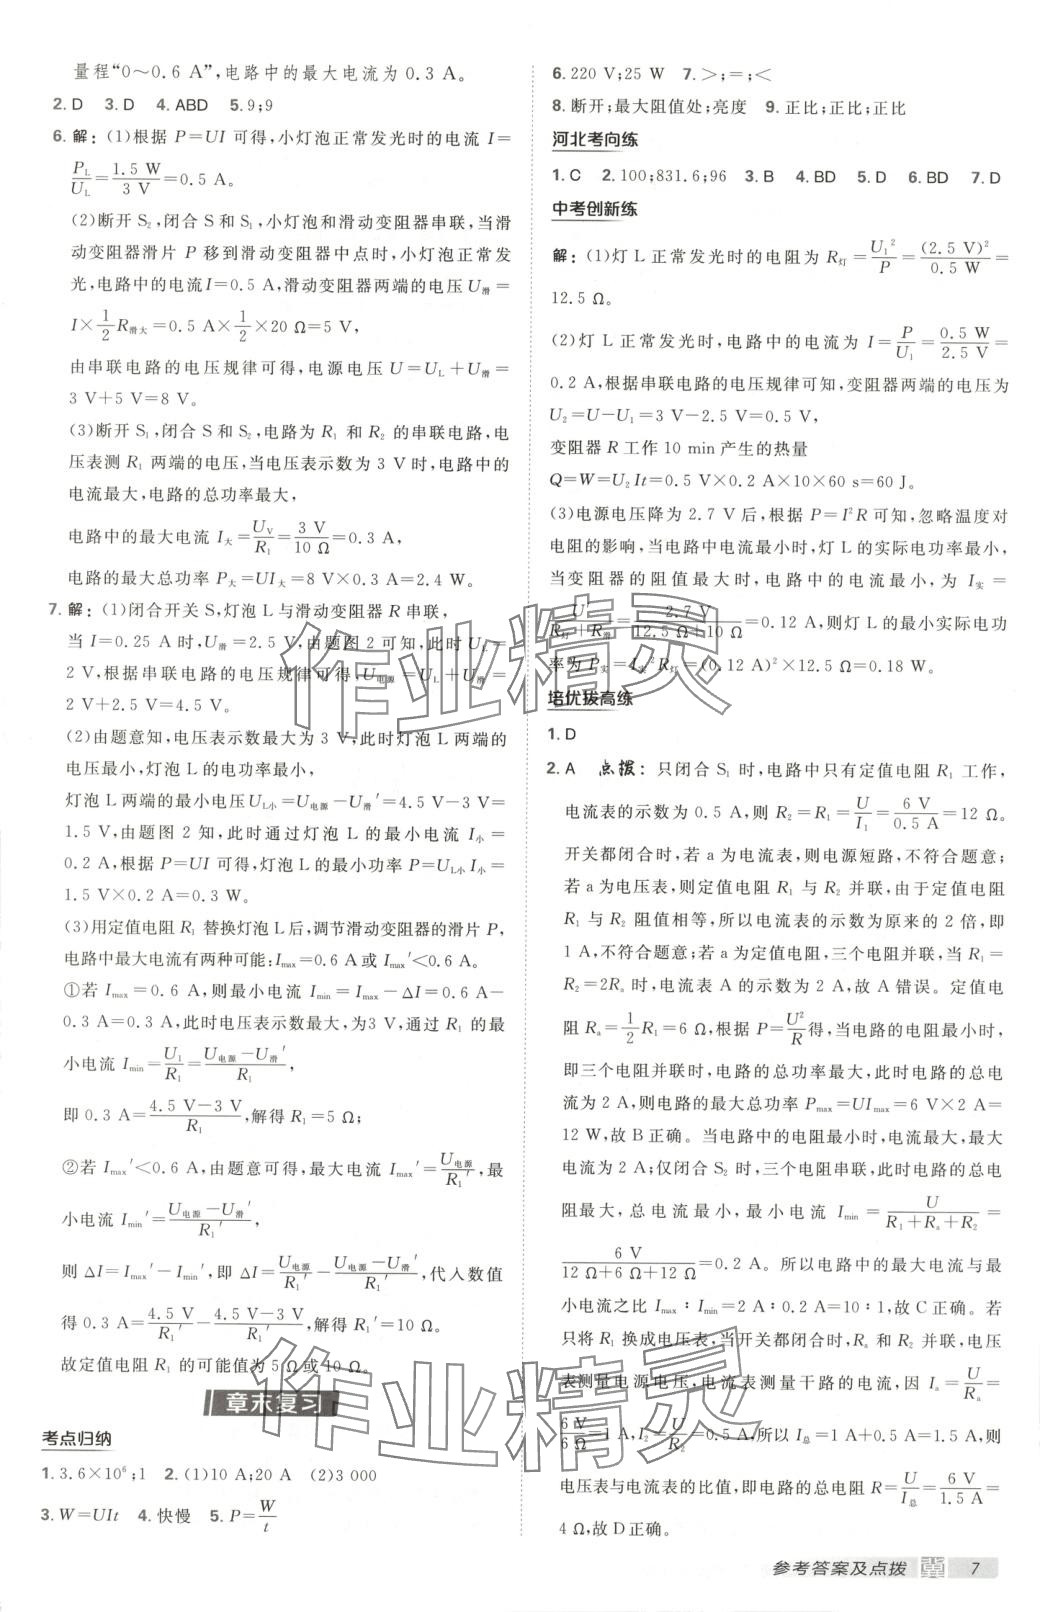 量程“0～0.6 A”,电路中的最大电流为 0.3 A。
2. D　3. D　4. ABD　5. 9;9
6. 解:(1)根据 P=UI 可得,小灯泡正常发光时的电流 I=
P_L/U_L=1.5 W/3 V=0.5 A。
(2)断开 S₂,闭合 S 和 S₁,小灯泡和滑动变阻器串联,当滑
动变阻器滑片 P 移到滑动变阻器中点时,小灯泡正常发
光,电路中的电流I=0.5 A,滑动变阻器两端的电压 U滑=
I×1/2 R滑大=0.5 A×1/2×20 Ω=5 V,
由串联电路的电压规律可得,电源电压 U=U_L+U滑=
3 V+5 V=8 V。
(3)断开 S₁,闭合 S 和 S₂,电路为 R₁ 和 R₂ 的串联电路,电
压表测 R₁ 两端的电压,当电压表示数为 3 V 时,电路中的
电流最大,电路的总功率最大,
电路中的最大电流 I大=U_V/R₁=3 V/10 Ω=0.3 A,
电路的最大总功率 P大=UI大=8 V×0.3 A=2.4 W。
7. 解:(1)闭合开关 S,灯泡 L 与滑动变阻器 R 串联,
当 I=0.25 A 时,U滑=2.5 V,由题图 2 可知,此时 U_L=
2 V,根据串联电路的电压规律可得,U电源=U_L+U滑=
2 V+2.5 V=4.5 V。
(2)由题意知,电压表示数最大为 3 V,此时灯泡 L 两端的
电压最小,灯泡 L 的电功率最小,
灯泡 L 两端的最小电压 U_L小=U电源−U滑′=4.5 V−3 V=
1.5 V,由题图 2 知,此时通过灯泡 L 的最小电流 I小=
0.2 A,根据 P=UI 可得,灯泡 L 的最小功率 P=U_L小 I小=
1.5 V×0.2 A=0.3 W。
(3)用定值电阻 R₁ 替换灯泡 L 后,调节滑动变阻器的滑片 P,
电路中最大电流有两种可能:Imax=0.6 A 或 Imax′<0.6 A。
①若 Imax=0.6 A,则最小电流 Imin=Imax−ΔI=0.6 A−
0.3 A=0.3 A,此时电压表示数最大,为3 V,通过 R₁ 的最
小电流 Imin=U₁/R₁=(U电源−U滑′)/R₁,
即 0.3 A=(4.5 V−3 V)/R₁,解得 R₁=5 Ω;
②若 Imax′<0.6 A,由题意可得,最大电流 Imax′=U电源/R₁′,最
小电流 Imin′=(U电源−U滑′)/R₁′,
则 ΔI=Imax′−Imin′,即 ΔI=U电源/R₁′−(U电源−U滑′)/R₁′,代入数值
得 0.3 A=4.5 V/R₁′−(4.5 V−3 V)/R₁′,解得 R₁′=10 Ω。
故定值电阻 R₁ 的可能值为 5 Ω 或 10 Ω。
章末复习
考点归纳
1. 3.6×10⁶;1　2. (1)10 A;20 A　(2)3 000
3. W=UIt　4. 快慢　5. P=W/t
6. 220 V;25 W　7. >;=;<
8. 断开;最大阻值处;亮度　9. 正比;正比;正比
河北考向练
1. C　2. 100;831.6;96　3. B　4. BD　5. D　6. BD　7. D
中考创新练
解:(1)灯 L 正常发光时的电阻为 R灯=U₁²/P=(2.5 V)²/0.5 W=
12.5 Ω。
(2)灯 L 正常发光时,电路中的电流为 I=P/U₁=0.5 W/2.5 V=
0.2 A,根据串联电路的电压规律可知,变阻器两端的电压为
U₂=U−U₁=3 V−2.5 V=0.5 V,
变阻器 R 工作 10 min 产生的热量
Q=W=U₂It=0.5 V×0.2 A×10×60 s=60 J。
(3)电源电压降为 2.7 V 后,根据 P=I²R 可知,忽略温度对
电阻的影响,当电路中电流最小时,灯 L 的实际电功率最小,
当变阻器的阻值最大时,电路中的电流最小,为 I实=
U′/(R灯+R滑)=2.7 V/(12.5 Ω+10 Ω)=0.12 A,则灯 L 的最小实际电功
率为 P实=I实²R灯=(0.12 A)²×12.5 Ω=0.18 W。
培优拔高练
1. D
2. A　点拨:只闭合 S₁ 时,电路中只有定值电阻 R₁ 工作,
电流表的示数为 0.5 A,则 R₂=R₁=U/I₁=6 V/0.5 A=12 Ω。
开关都闭合时,若 a 为电流表,则电源短路,不符合题意;
若 a 为电压表,则定值电阻 R₁ 与 R₂ 并联,由于定值电阻
R₁ 与 R₂ 阻值相等,所以电流表的示数为原来的 2 倍,即
1 A,不符合题意;若 a 为定值电阻,三个电阻并联,当 R₁=
R₂=2Rₐ 时,电流表 A 的示数为 2 A,故 A 错误。定值电
阻 Rₐ=1/2 R₁=6 Ω,根据 P=U²/R得,当电路的电阻最小时,
即三个电阻并联时,电路的总功率最大,此时电路的总电
流为 2 A,则电路的最大总功率 Pmax=UImax=6 V×2 A=
12 W,故 B 正确。当电路中的电阻最小时,电流最大,最大
电流为 2 A;仅闭合 S₂ 时,三个电阻串联,此时电路的总电
阻最大,总电流最小,最小电流 Imin=U/(R₁+Rₐ+R₂)=
6 V/(12 Ω+6 Ω+12 Ω)=0.2 A。所以电路中的最大电流与最
小电流之比 Imax∶Imin=2 A∶0.2 A=10∶1,故 C 正确。若
只将 R₁ 换成电压表,当开关都闭合时,Rₐ 和 R₂ 并联,电压
表测量电源电压,电流表测量干路的电流,因 Iₐ=U/Rₐ=
6 V/6 Ω=1 A,I₂=U/R₂=0.5 A,所以 I总=1 A+0.5 A=1.5 A,则
电压表与电流表的比值,即电路的总电阻 R=U/I总=6 V/1.5 A=
4 Ω,故 D 正确。
参考答案及点拨 冀 7
作业精灵
作业精灵